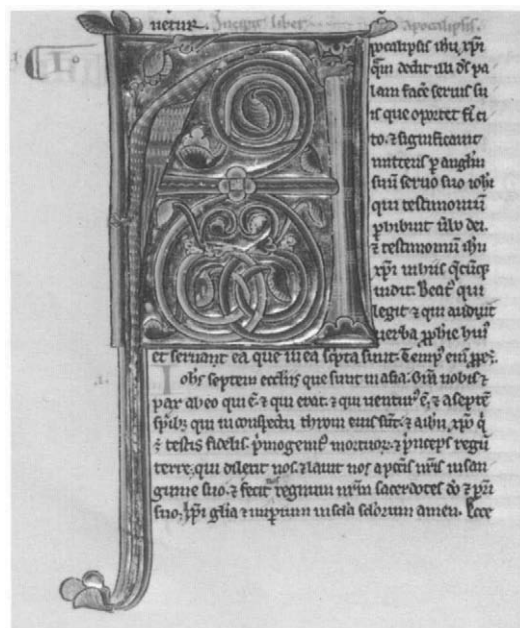 uetur. Incipit liber apocalipsis.
.I.
Apocalipsis ihu xpi
qm dedit illi ds pa
lam face seruis su
is que oportet fi ci
to. & significauit
mittens p anglm
suu seruo suo iohi
qui testimoniu
phibuit ublo dei.
& testimoniu ihu
xpi in hiis qcuq
uidit. Beat qui
legit & qui audiunt
uerba pphie hui
et seruant ea que in ea scpta sunt. Temp eni ppe e.
Iohs septem eccliis que sunt in asia. Gra uobis &
pax ab eo qui e & qui erat. & qui uentur e. & a septe
spibz qui in conspectu throni eius sut. & a ihu xpo q
e testis fidelis. pmogenit mortuor. & pnceps regu
terre. qui dilexit nos. & lauit nos a pctis nris in san
guine suo. & fecit nos regnum nrm sacerdotes do & pri
suo. Ipi glia & impium in scla sclorum amen. Ecce